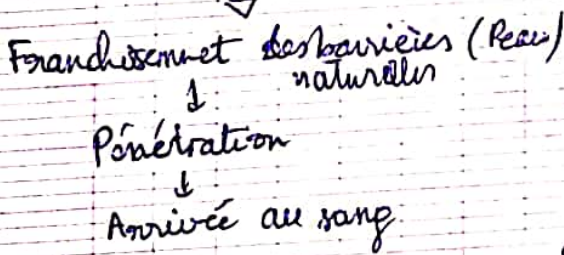 Franchissemnet des barrières (Peau)
naturelles
↓
Pénétration
↓
Arrivée au sang